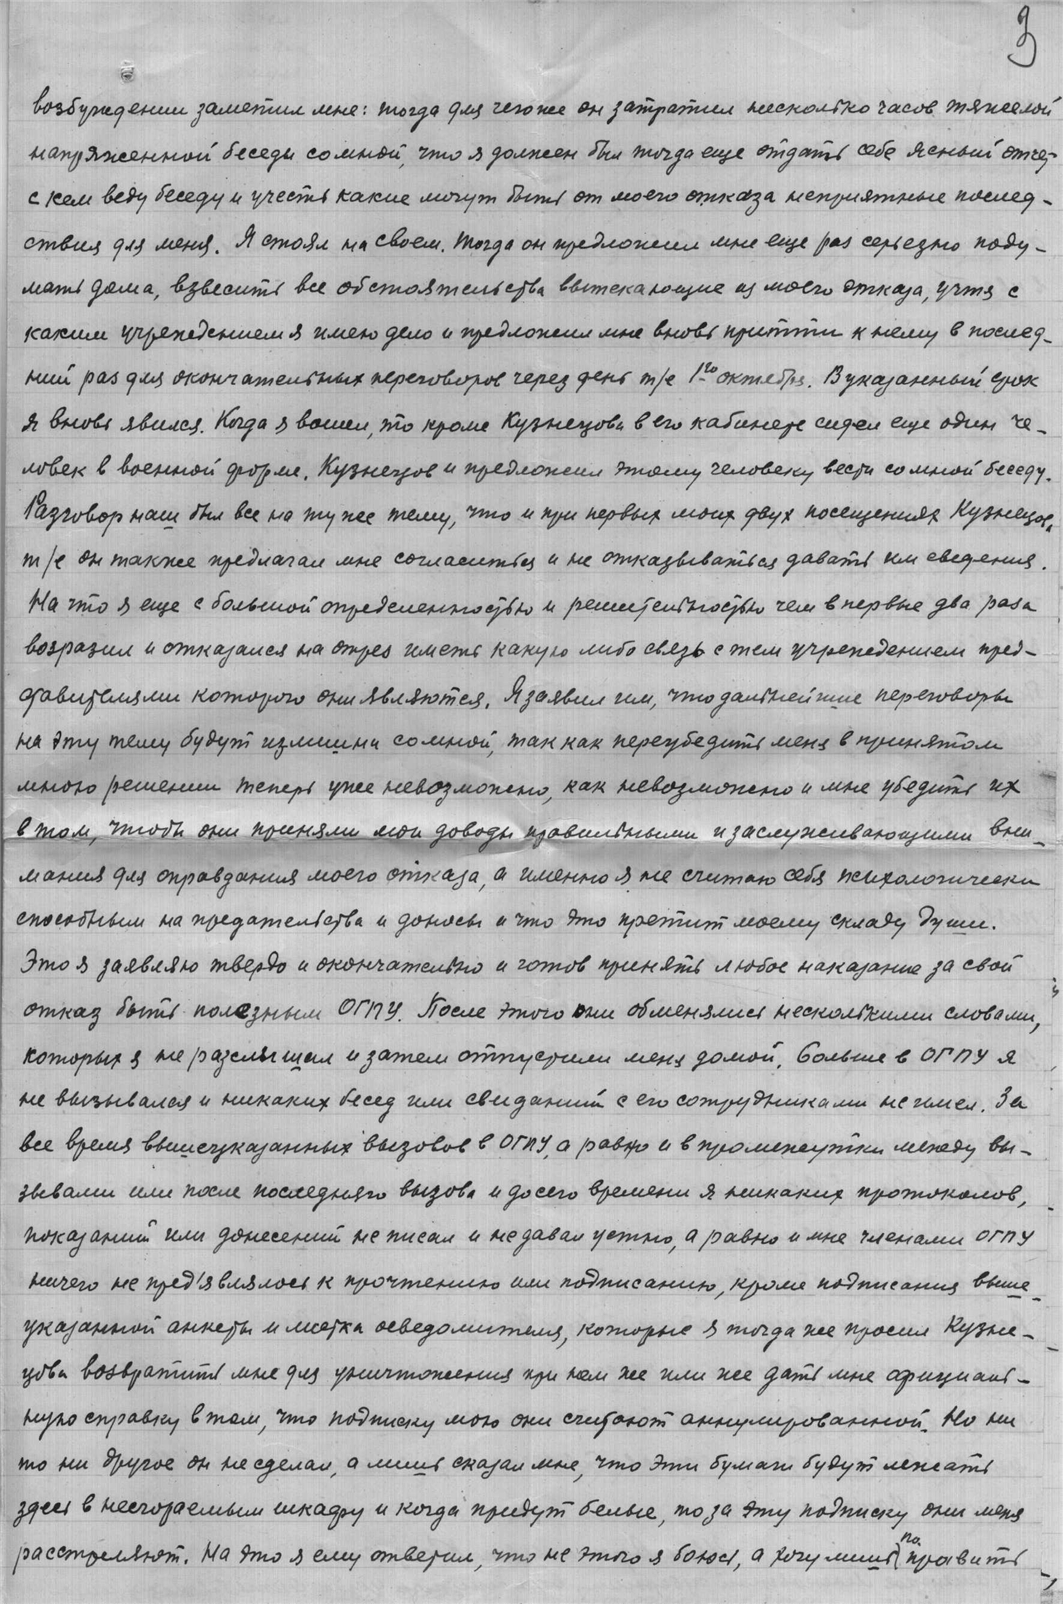 3
возбуждении заметил мне: тогда для чего же он затратил несколько часов тяжелой
напряженной беседы со мной, что я должен был тогда еще отдать себе ясный отчет
с кем веду беседу и учесть какие могут быть от моего отказа неприятные послед-
ствия для меня. Я стоял на своем. Тогда он предложил мне еще раз серьезно поду-
мать дома, взвесить все обстоятельства вытекающие из моего отказа, учтя с
каким учреждением я имею дело и предложил мне вновь притти к нему в послед-
ний раз для окончательных переговоров через день т/е 1го октября. В указанный срок
я вновь явился. Когда я вошел, то кроме Кузнецова в его кабинете сидел еще один че-
ловек в военной форме. Кузнецов и предложил этому человеку вести со мной беседу.
Разговор наш был все на ту же тему, что и при первых моих двух посещениях Кузнецова
т/е он также предлагал мне согласиться и не отказываться давать им сведения.
На что я еще с большой определенностью и решительностью чем в первые два раза
возразил и отказался на отрез иметь какую либо связь с тем учреждением пред-
ставителями которого они являются. Я заявил им, что дальнейшие переговоры
на эту тему будут излишни со мной, так как переубедить меня в принятом
мною решении теперь уже невозможно, как невозможно и мне убедить их
в том, чтобы они приняли мои доводы правильными и заслуживающими вни-
мания для оправдания моего отказа, а именно я не считаю себя психологически
способным на предательства и доносы и что это претит моему складу души.
Это я заявляю твердо и окончательно и готов принять любое наказание за свой
отказ быть полезным ОГПУ. После этого они обменялись несколькими словами,
которых я не расслышал и затем отпустили меня домой. Больше в ОГПУ я
не вызывался и никаких бесед или свиданий с его сотрудниками не имел. За
все время вышеуказанных вызовов в ОГПУ, а равно и в промежутки между вы-
зывами или после последняго вызова и до сего времени я никаких протоколов,
показаний или донесений не писал и не давал устно, а равно и мне членами ОГПУ
ничего не пред'являлось к прочтению или подписанию, кроме подписания выше-
указанной анкеты и листка осведомителя, которые я тогда же просил Кузне-
цова возвратить мне для уничтожения при нем же или же дать мне официаль-
ную справку в том, что подписку мою они считают аннулированной. Но ни
то ни другое он не сделал, а лишь сказал мне, что эти бумаги будут лежать
здесь в несгораемым шкафу и когда придут белые, то за эту подписку они меня
расстреляют. На это я ему ответил, что не этого я боюсь, а хочу лишь поправить